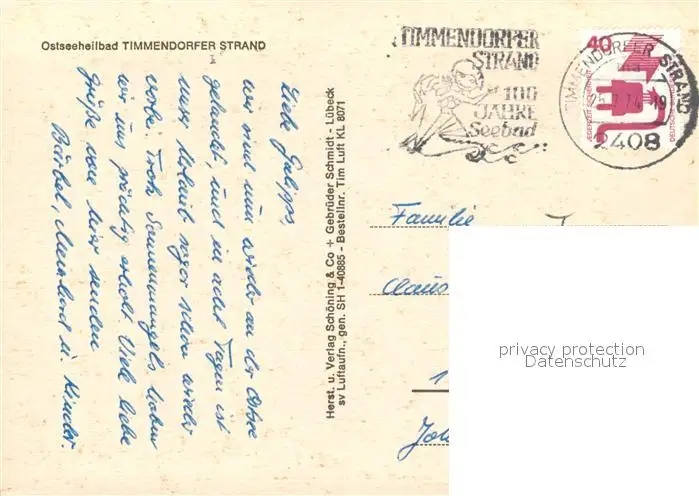 Ostseeheilbad TIMMENDORFER STRAND
Liebe
wir sind nun wieder an der Ostsee
gelandet, und in acht Tagen ist
unser Urlaub sogar schon wieder
vorbei. Trotz Sonnenmangels haben
wir uns prächtig erholt. Viele liebe
Grüße von hier senden
Bärbel, Meinhard u. Kinder.
Herst. u. Verlag Schöning & Co + Gebrüder Schmidt - Lübeck
sv Luftaufn., gen. SH 1-40885 - Bestellnr. Tim Luft KL 8071
TIMMENDORFER
STRAND
100
JAHRE
Seebad
TIMMENDORFER STRAND
2408
40
JEDERZEIT SICHERHEIT
DEUTSCHE
Familie
Claus
privacy protection
Datenschutz